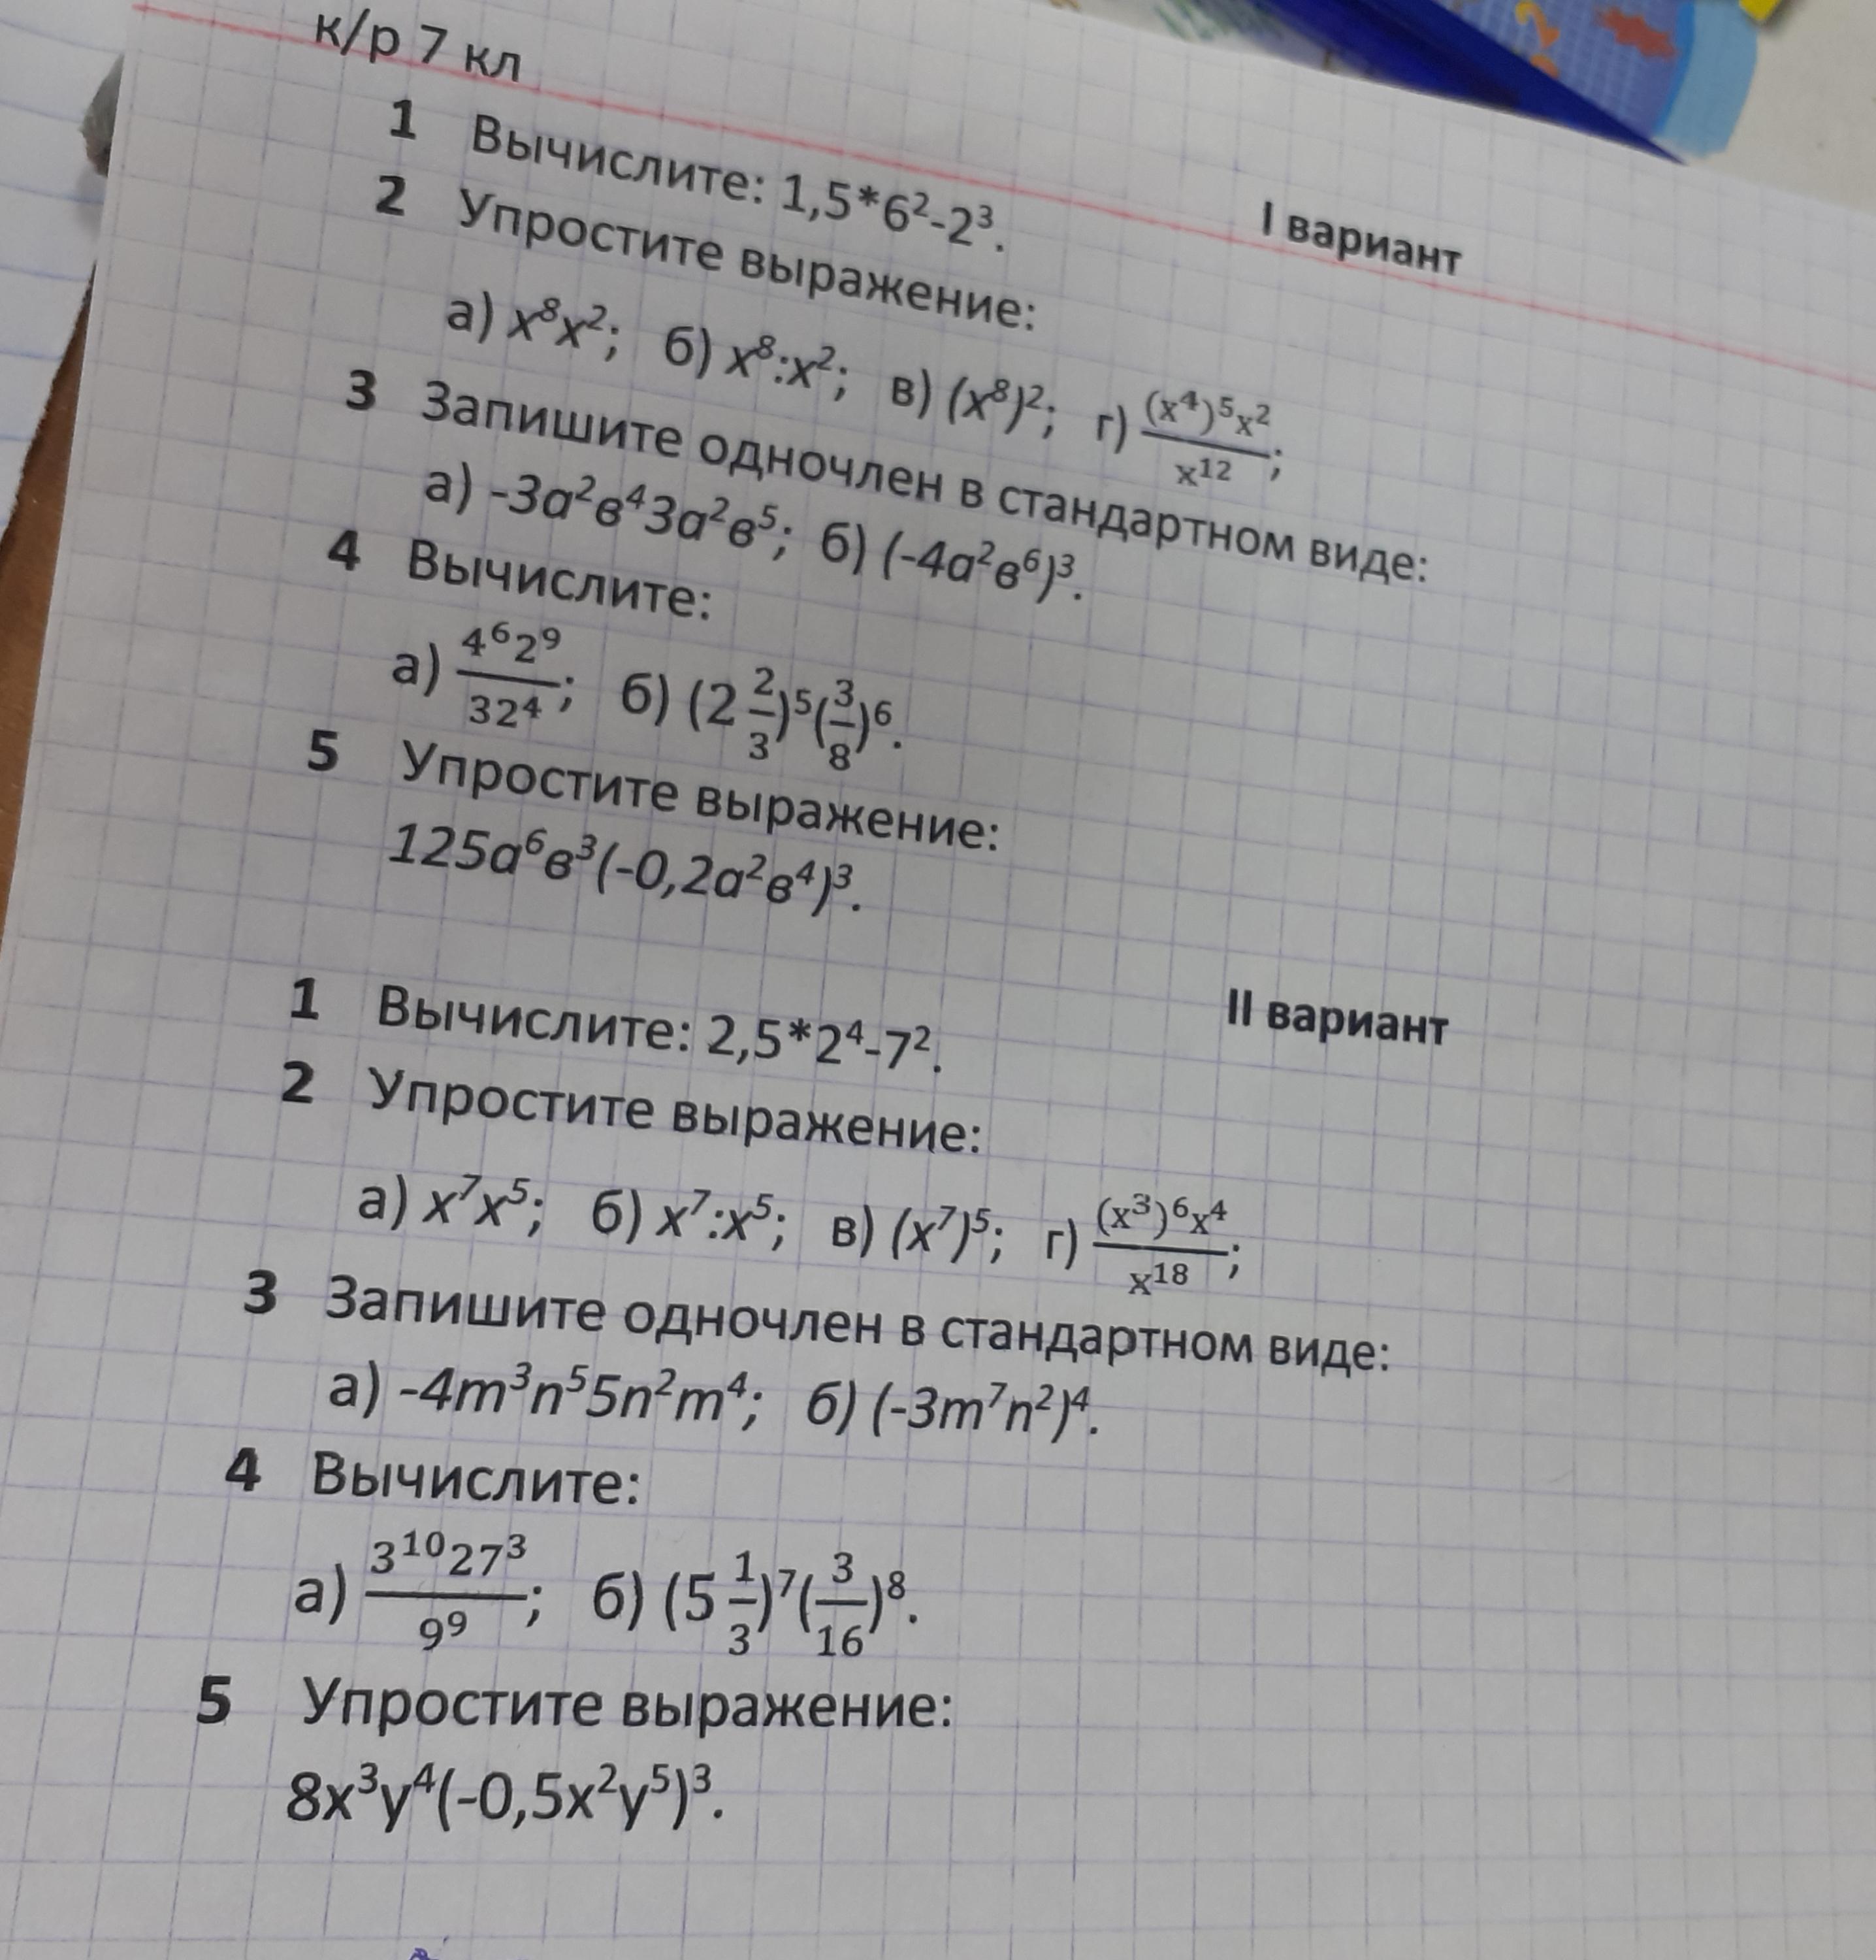 к/р 7 кл
I вариант
1 Вычислите: 1,5*6²-2³.
2 Упростите выражение:
а) x⁸x²; б) x⁸:x²; в) (x⁸)²; г) (x⁴)⁵x²/x¹²;
3 Запишите одночлен в стандартном виде:
а) -3а²в⁴3а²в⁵; б) (-4а²в⁶)³.
4 Вычислите:
а) 4⁶2⁹/32⁴; б) (2 2/3)⁵(3/8)⁶.
5 Упростите выражение:
125а⁶в³(-0,2а²в⁴)³.
II вариант
1 Вычислите: 2,5*2⁴-7².
2 Упростите выражение:
а) x⁷x⁵; б) x⁷:x⁵; в) (x⁷)⁵; г) (x³)⁶x⁴/x¹⁸;
3 Запишите одночлен в стандартном виде:
а) -4m³n⁵5n²m⁴; б) (-3m⁷n²)⁴.
4 Вычислите:
а) 3¹⁰27³/9⁹; б) (5 1/3)⁷(3/16)⁸.
5 Упростите выражение:
8x³y⁴(-0,5x²y⁵)³.